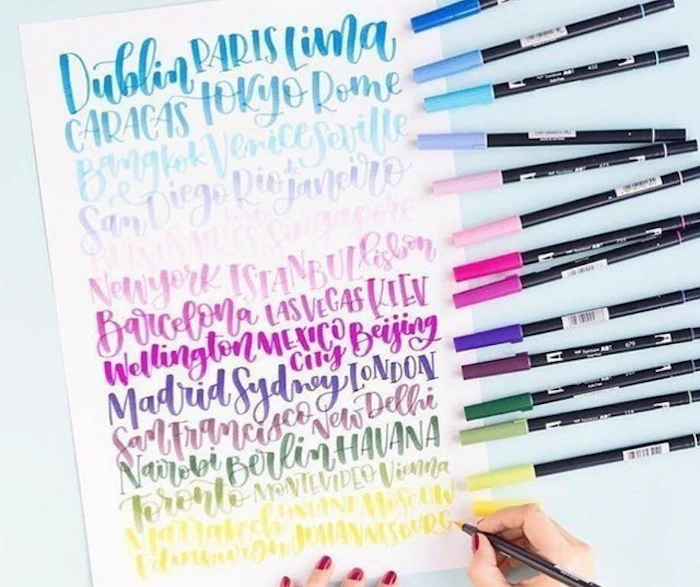 Dublin PARIS Lima
CARACAS TOKYO Rome
Bangkok Venice Seville
San Diego Rio de janeiro
BUENOS AIRES Singapore
New york ISTANBUL lisbon
Barcelona LAS VEGAS KIEV
Wellington MEXICO CITY Beijing
Madrid Sydney LONDON
San Francisco New Delhi
Nairobi Berlin HAVANA
Toronto MONTEVIDEO Vienna
Marrakech Moscow
Edinburgh JOHANNESBURG